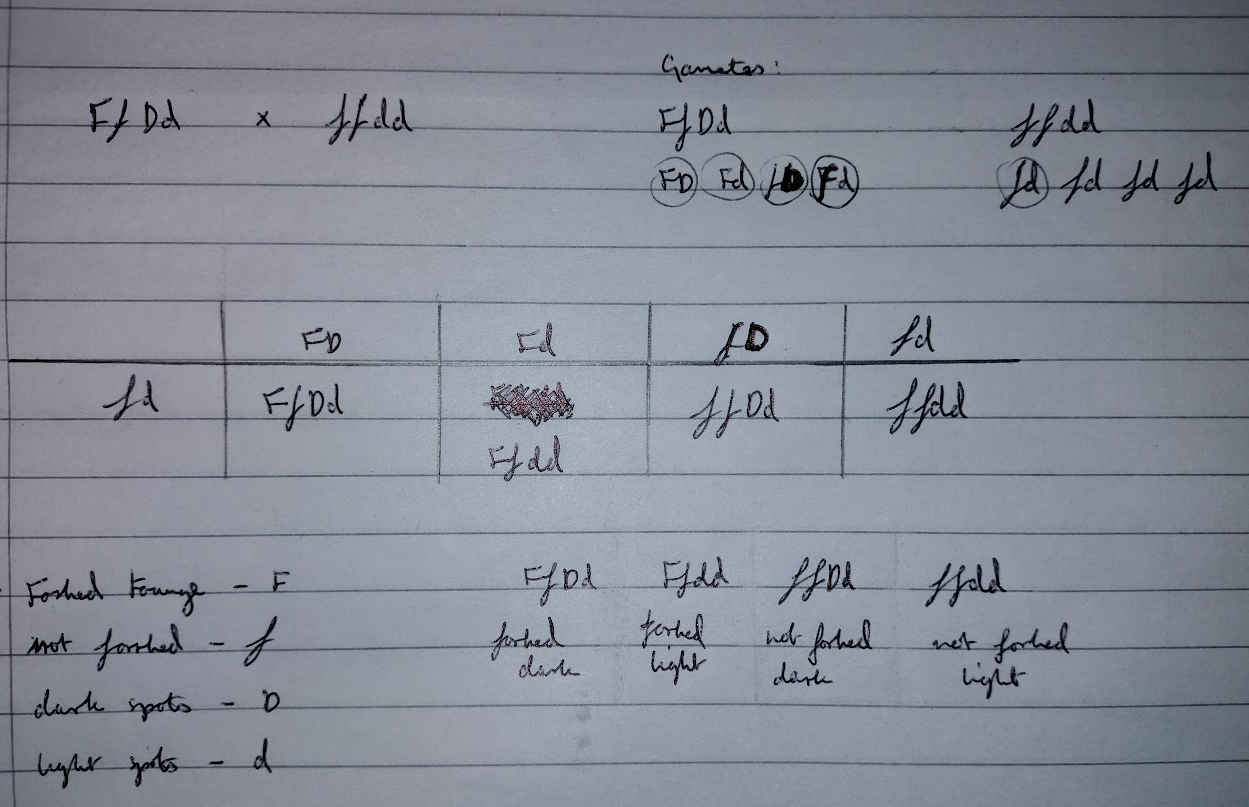 Gametes:
FfDd x ffdd FfDd ffdd
FD Fd fD Fd fd fd fd fd
FD Fd fD fd
fd FfDd ffDd ffdd
Ffdd
Forked Tounge - F FfDd Ffdd ffDd ffdd
not forked - f forked dark forked light not forked dark not forked light
dark spots - D
light spots - d